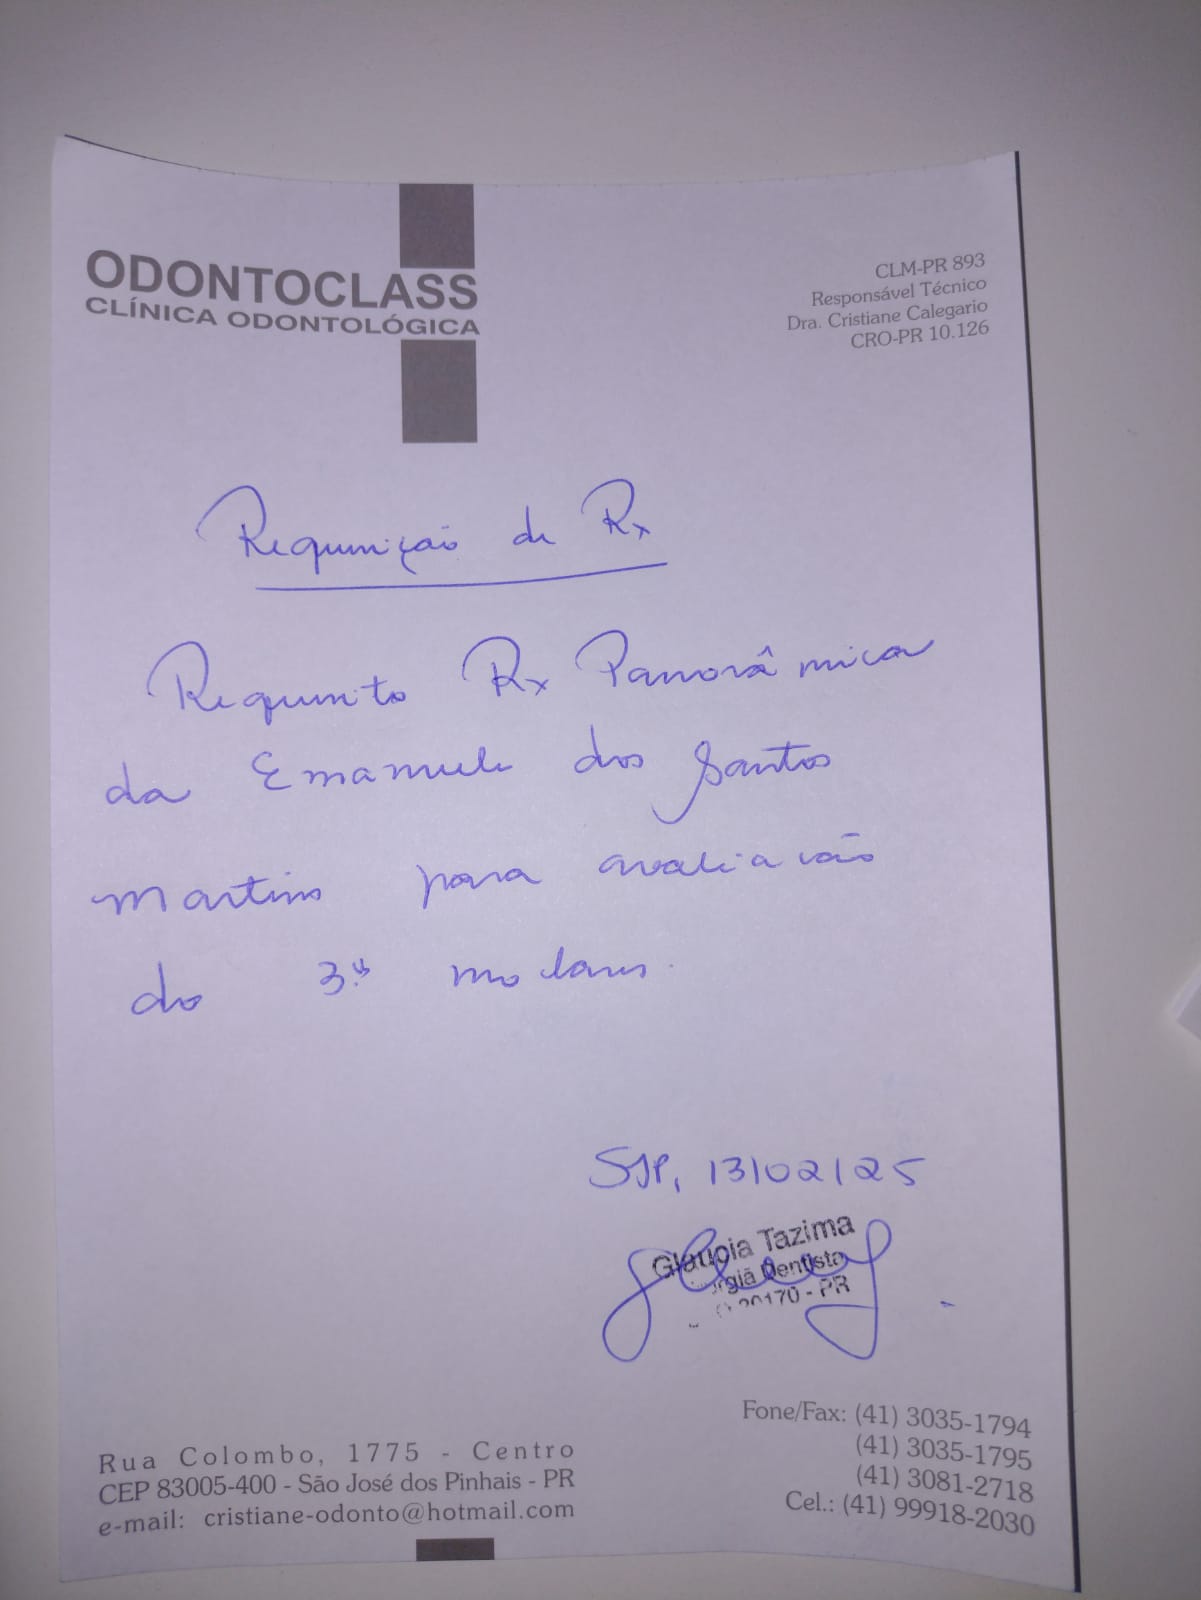 ODONTOCLASS
CLÍNICA ODONTOLÓGICA
CLM-PR 893
Responsável Técnico
Dra. Cristiane Calegario
CRO-PR 10.126
Requisição de Rx
Requisito Rx Panorâmica
da Emanuele dos Santos
Martins para avaliação
do 3.ºs molares.
SJP, 13/02/25
Glaucia Tazima
Dentista
20170 - PR
Rua Colombo, 1775 - Centro
CEP 83005-400 - São José dos Pinhais - PR
e-mail: cristiane-odonto@hotmail.com
Fone/Fax: (41) 3035-1794
(41) 3035-1795
(41) 3081-2718
Cel.: (41) 99918-2030